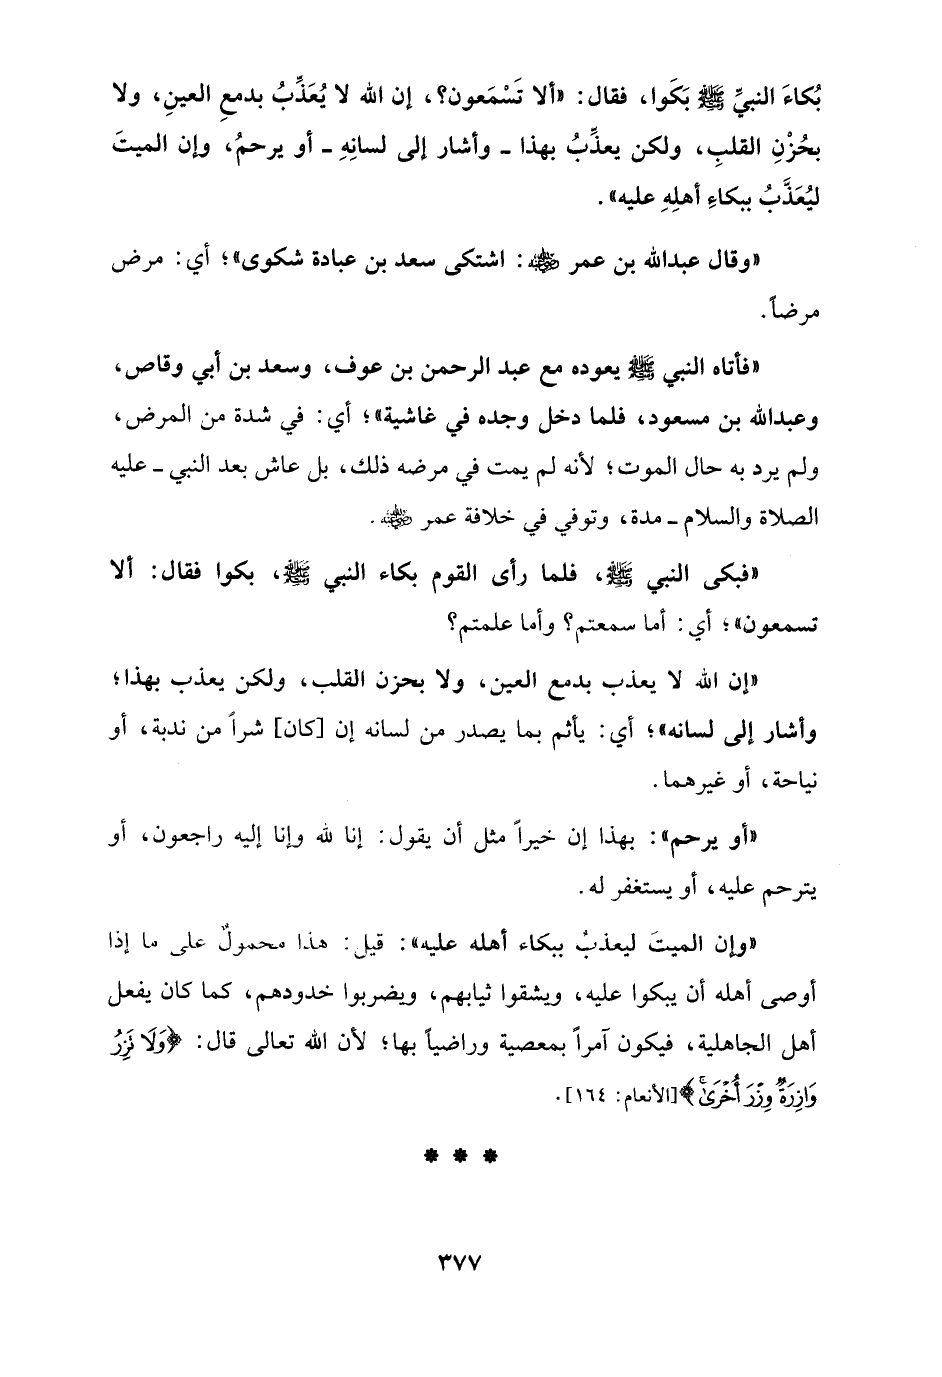 بُكاءَ النبيِّ ﷺ بَكَوا، فقال: «ألا تَسْمَعون؟، إن الله لا يُعَذِّبُ بدمعِ العينِ، ولا
بحُزْنِ القلبِ، ولكن يعذِّبُ بهذا ـ وأشار إلى لسانِهِ ـ أو يرحمُ، وإن الميتَ
ليُعَذَّبُ ببكاءِ أهلِهِ عليه».
«وقال عبدالله بن عمر ﷺ: اشتكى سعد بن عبادة شكوى»؛ أي: مرض
مرضاً.
«فأتاه النبي ﷺ يعوده مع عبد الرحمن بن عوف، وسعد بن أبي وقاص،
وعبدالله بن مسعود، فلما دخل وجده في غاشية»؛ أي: في شدة من المرض،
ولم يرد به حال الموت؛ لأنه لم يمت في مرضه ذلك، بل عاش بعد النبي ـ عليه
الصلاة والسلام ـ مدة، وتوفي في خلافة عمر رضي الله عنه.
«فبكى النبي ﷺ، فلما رأى القوم بكاء النبي ﷺ، بكوا فقال: ألا
تسمعون»؛ أي: أما سمعتم؟ وأما علمتم؟
«إن الله لا يعذب بدمع العين، ولا بحزن القلب، ولكن يعذب بهذا؛
وأشار إلى لسانه»؛ أي: يأثم بما يصدر من لسانه إن [كان] شراً من ندبة، أو
نياحة، أو غيرهما.
«أو يرحم»: بهذا إن خيراً مثل أن يقول: إنا لله وإنا إليه راجعون، أو
يترحم عليه، أو يستغفر له.
«وإن الميتَ ليعذبُ ببكاء أهله عليه»: قيل: هذا محمولٌ على ما إذا
أوصى أهله أن يبكوا عليه، ويشقوا ثيابهم، ويضربوا خدودهم، كما كان يفعل
أهل الجاهلية، فيكون آمراً بمعصية وراضياً بها؛ لأن الله تعالى قال: ﴿وَلَا تَزِرُ
وَازِرَةٌ وِزْرَ أُخْرَىٰ﴾ [الأنعام: ١٦٤].
* * *
٣٧٧